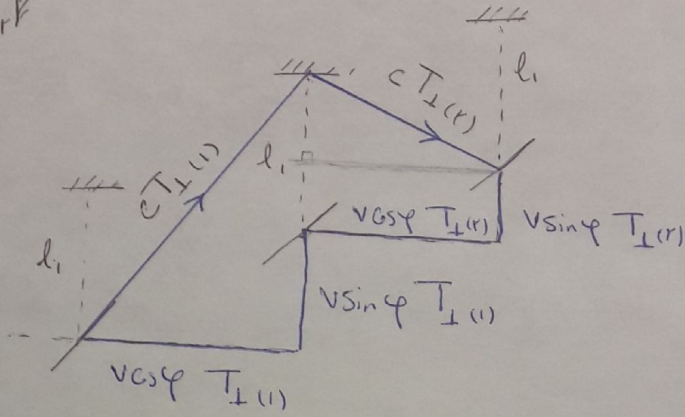 l₁
c T⊥(r)
l₁
c T⊥(1)
v cosφ T⊥(r)
v sinφ T⊥(r)
l₁
v sinφ T⊥(1)
v cosφ T⊥(1)